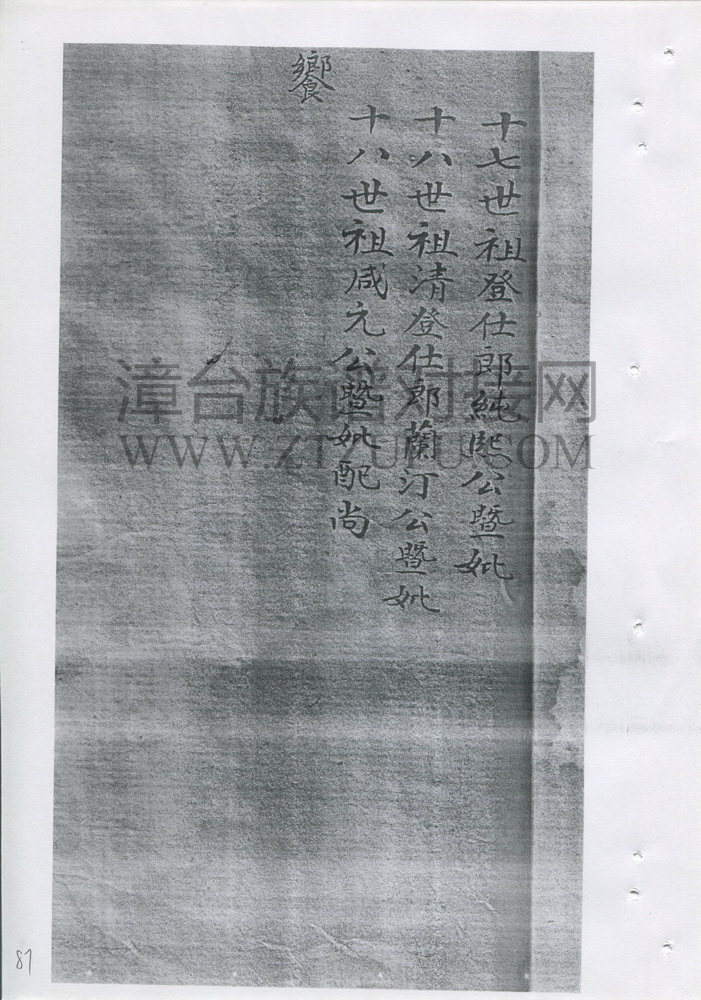 十七世祖登仕郎純熙公暨妣
十八世祖清登仕郎蘭汀公暨妣
十八世祖咸元公暨妣配尚
饗
漳台族谱对接网
WWW.ZTZUPU.COM
87